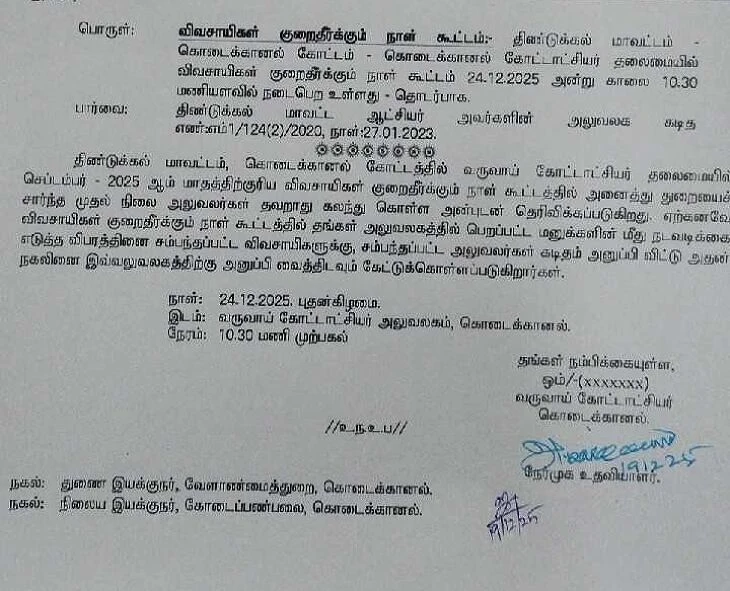 பொருள்: விவசாயிகள் குறைதீர்க்கும் நாள் கூட்டம்:- திண்டுக்கல் மாவட்டம் -
கொடைக்கானல் கோட்டம் - கொடைக்கானல் கோட்டாட்சியர் தலைமையில்
விவசாயிகள் குறைதீர்க்கும் நாள் கூட்டம் 24.12.2025 அன்று காலை 10.30
மணியளவில் நடைபெற உள்ளது - தொடர்பாக.
பார்வை: திண்டுக்கல் மாவட்ட ஆட்சியர் அவர்களின் அலுவலக கடித
எண்:எம்1/124(2)/2020, நாள்:27.01.2023.
திண்டுக்கல் மாவட்டம், கொடைக்கானல் கோட்டத்தில் வருவாய் கோட்டாட்சியர் தலைமையில்
செப்டம்பர் - 2025 ஆம் மாதத்திற்குரிய விவசாயிகள் குறைதீர்க்கும் நாள் கூட்டத்தில் அனைத்து துறையைச்
சார்ந்த முதல் நிலை அலுவலர்கள் தவறாது கலந்து கொள்ள அன்புடன் தெரிவிக்கப்படுகிறது. ஏற்கனவே
விவசாயிகள் குறைதீர்க்கும் நாள் கூட்டத்தில் தங்கள் அலுவலகத்தில் பெறப்பட்ட மனுக்களின் மீது நடவடிக்கை
எடுத்த விபரத்தினை சம்பந்தப்பட்ட விவசாயிகளுக்கு, சம்பந்தப்பட்ட அலுவலர்கள் கடிதம் அனுப்பி விட்டு அதன்
நகலினை இவ்வலுவலகத்திற்கு அனுப்பி வைத்திடவும் கேட்டுக்கொள்ளப்படுகிறார்கள்.
நாள்: 24.12.2025. புதன்கிழமை.
இடம்: வருவாய் கோட்டாட்சியர் அலுவலகம், கொடைக்கானல்.
நேரம்: 10.30 மணி முற்பகல்
தங்கள் நம்பிக்கையுள்ள,
ஒம்/-(xxxxxxx)
வருவாய் கோட்டாட்சியர்
கொடைக்கானல்.
//உ.ந.உ.ப//
19.12.25
நேர்முக உதவியாளர்.
நகல்: துணை இயக்குநர், வேளாண்மைத்துறை, கொடைக்கானல்.
நகல்: நிலைய இயக்குநர், கோடைப்பண்பலை, கொடைக்கானல்.
19/12/25